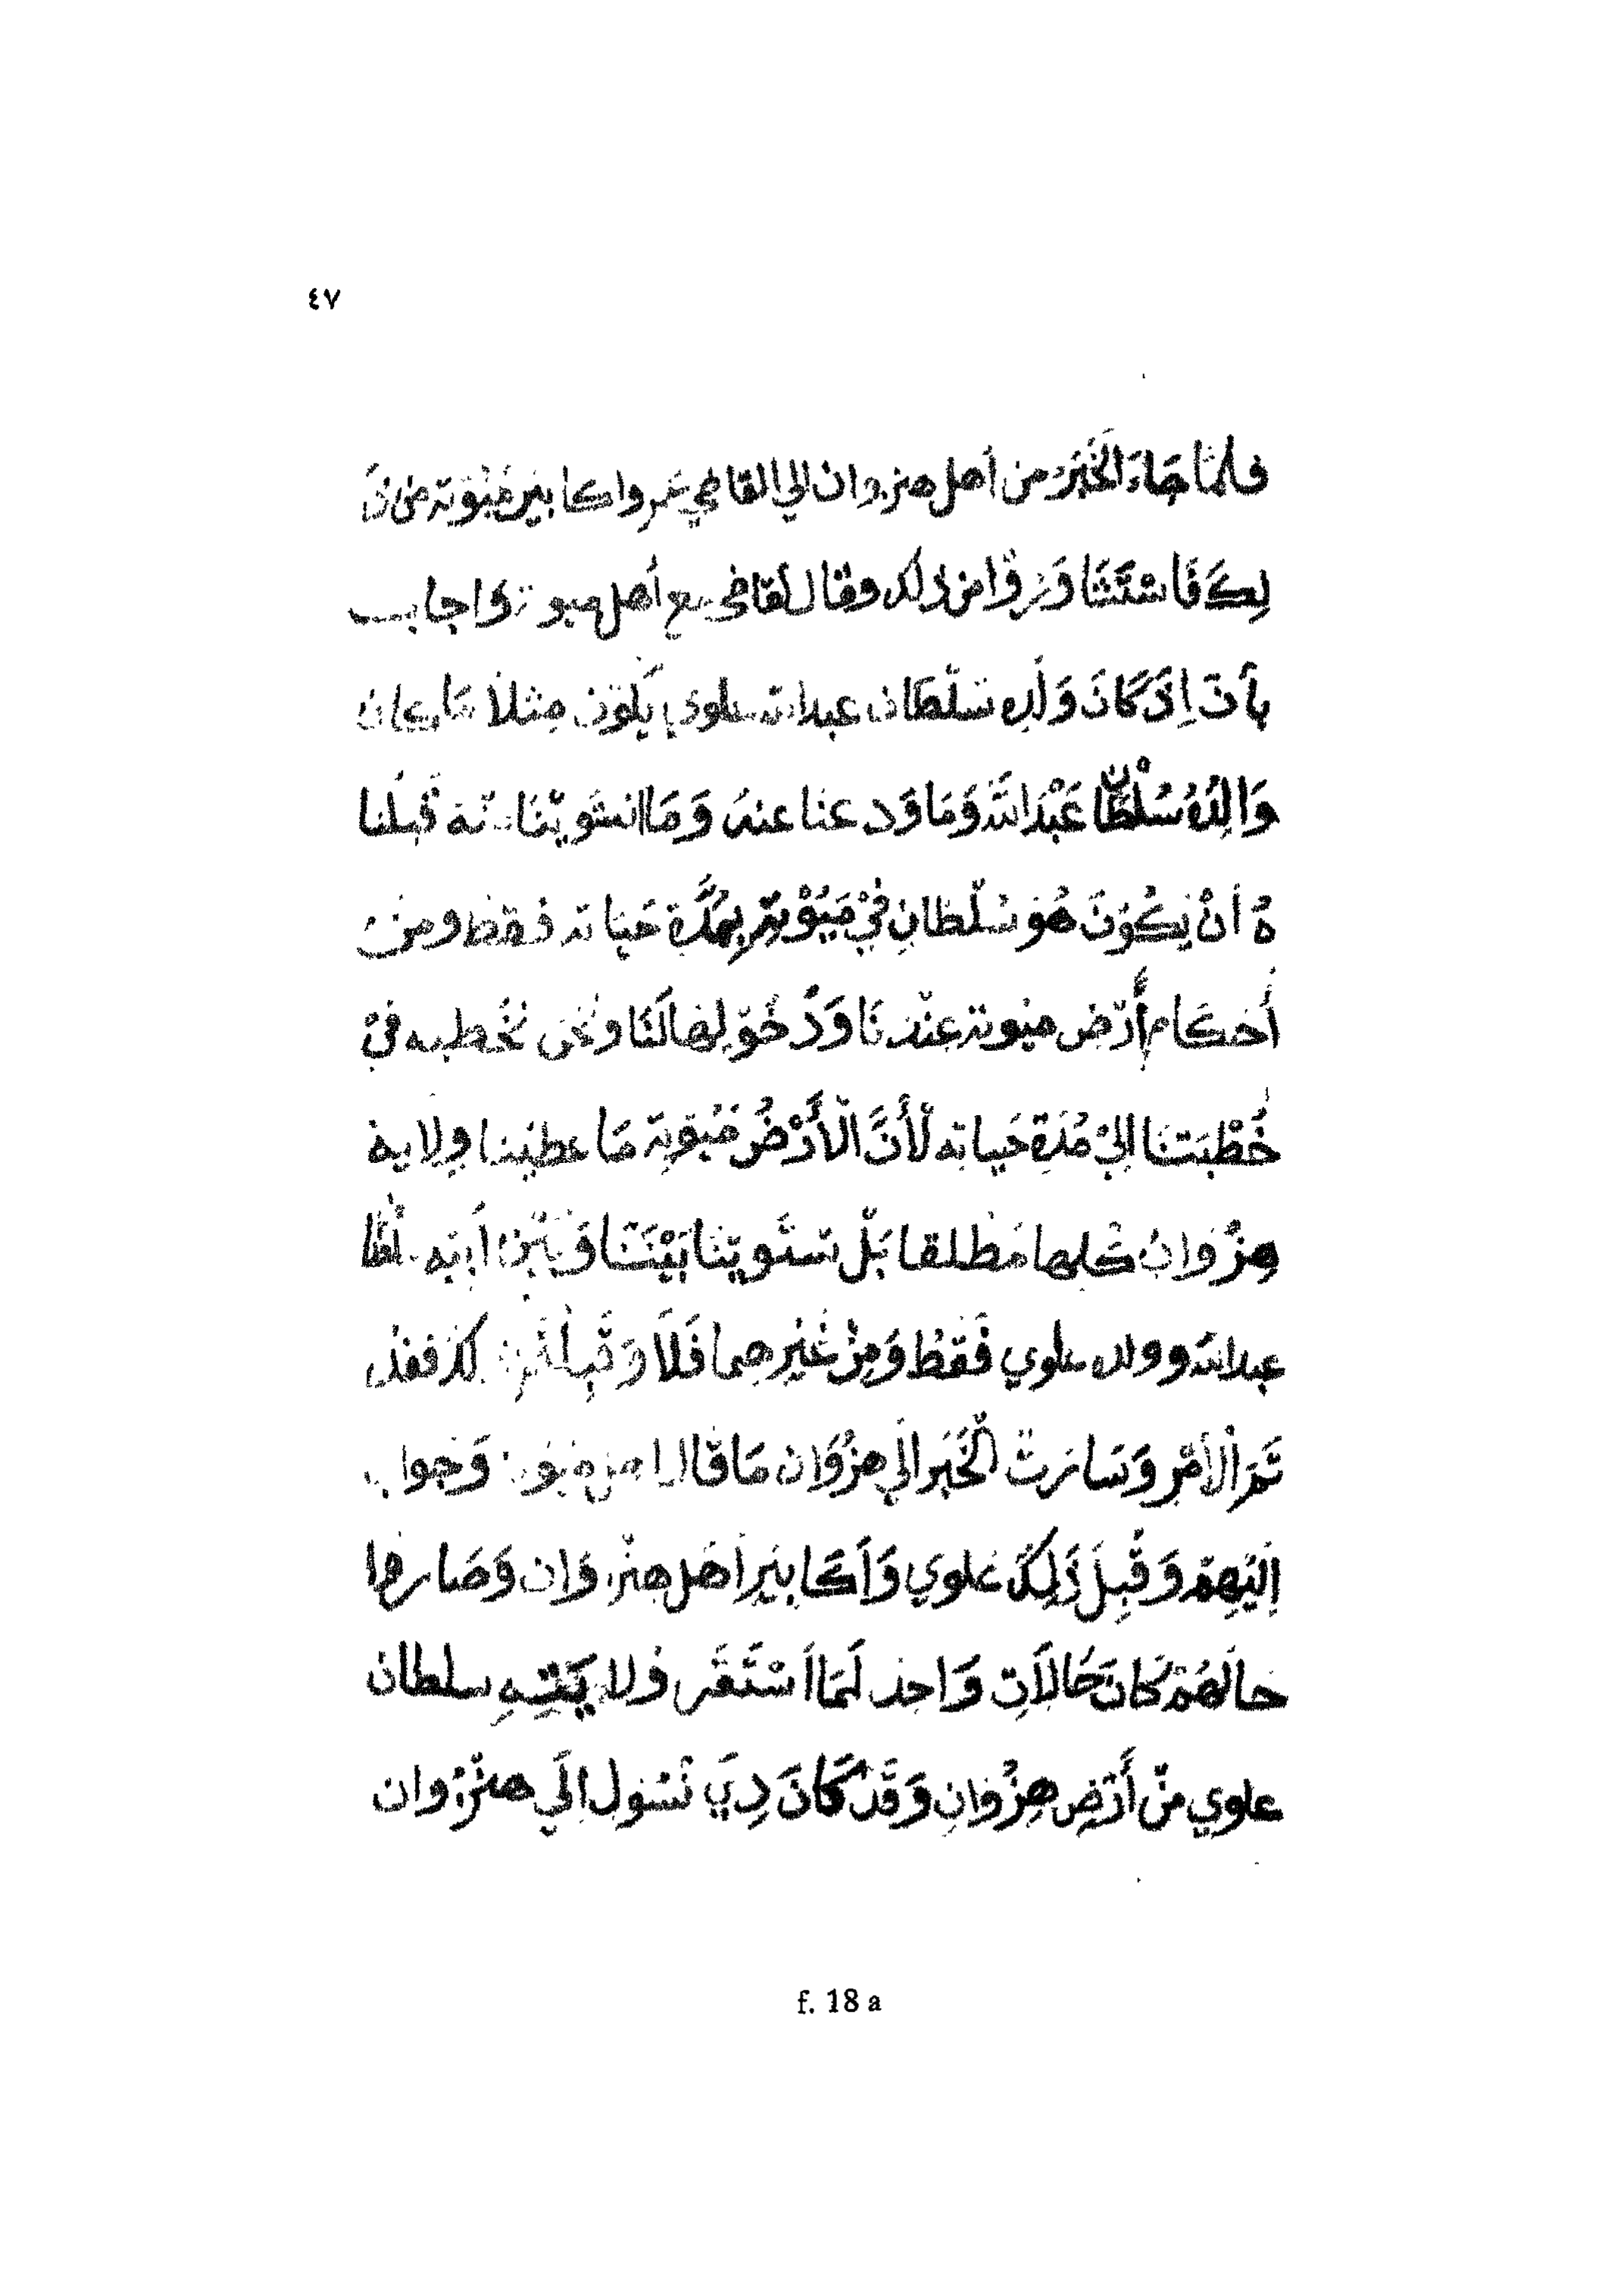 ٤٧
فلمّا جَاءَ الْخَبَرُ من أهل هنزوان الي القاضي عمر واكابير مَيُوتة من ذَ
لِكَ فَاسْتَشَاوَرُوا من ذلك وقال لقاضي مع أهل ميوتة واجاب
بأن اِذَ كَانَ وَلَدِهِ سلطان عبدالله علوي يَكُون مثلا مَا كان
وَالِدُهُ سُلْطَانْ عَبْدَ اللّٰه وَمَا وَدعنا عنه وَمَا انشويْنَا قبلنا
هُ أنْ يَكُوْنَ هُوَ سُلْطان فِيْ مَيُوْتة بِمُدَّةِ حَيَاته فقط ومن
أحكام أَرْض ميوتة عِنْدنَا وَدُخُوْلِهَا لَنَا ونحن نخطبه فِيْ
خُطْبَتنَا اِلِيْ مُدَةِ حَياته لأَنَّ الْأَرْضُ مَيُوتة مَا عطيْنا ولاية
هِنْزُوَانْ كلها مَطلقا بَلْ تسوّيتنا بَيْنَنَا وَبَيْن أبيه سلطا
عبدالله وولده علوي فَقَطْ وَمِنْ غَيْرهما فَلَا وَقَبِلَ لكذ فقد
تَمَ الْأَمْر وَسَارتْ الْخَبَر اِلَي هنزُوَان مَا قَال من وَجواب
اِلَيْهِمْ وَقَبِلَ ذَلِكَ علوي وَأَكَابير اَهل هنزوَان وَصَاروا
حَالهُمْ كَانَ حَالَات وَاحد لَمَا اَسْتَقَر ولا سلطان
علوي مِنْ أَرْض هِنْزُوَان وَقَدْ كَانَ دِي نَسُول اِلَي هنزوان
f. 18 a